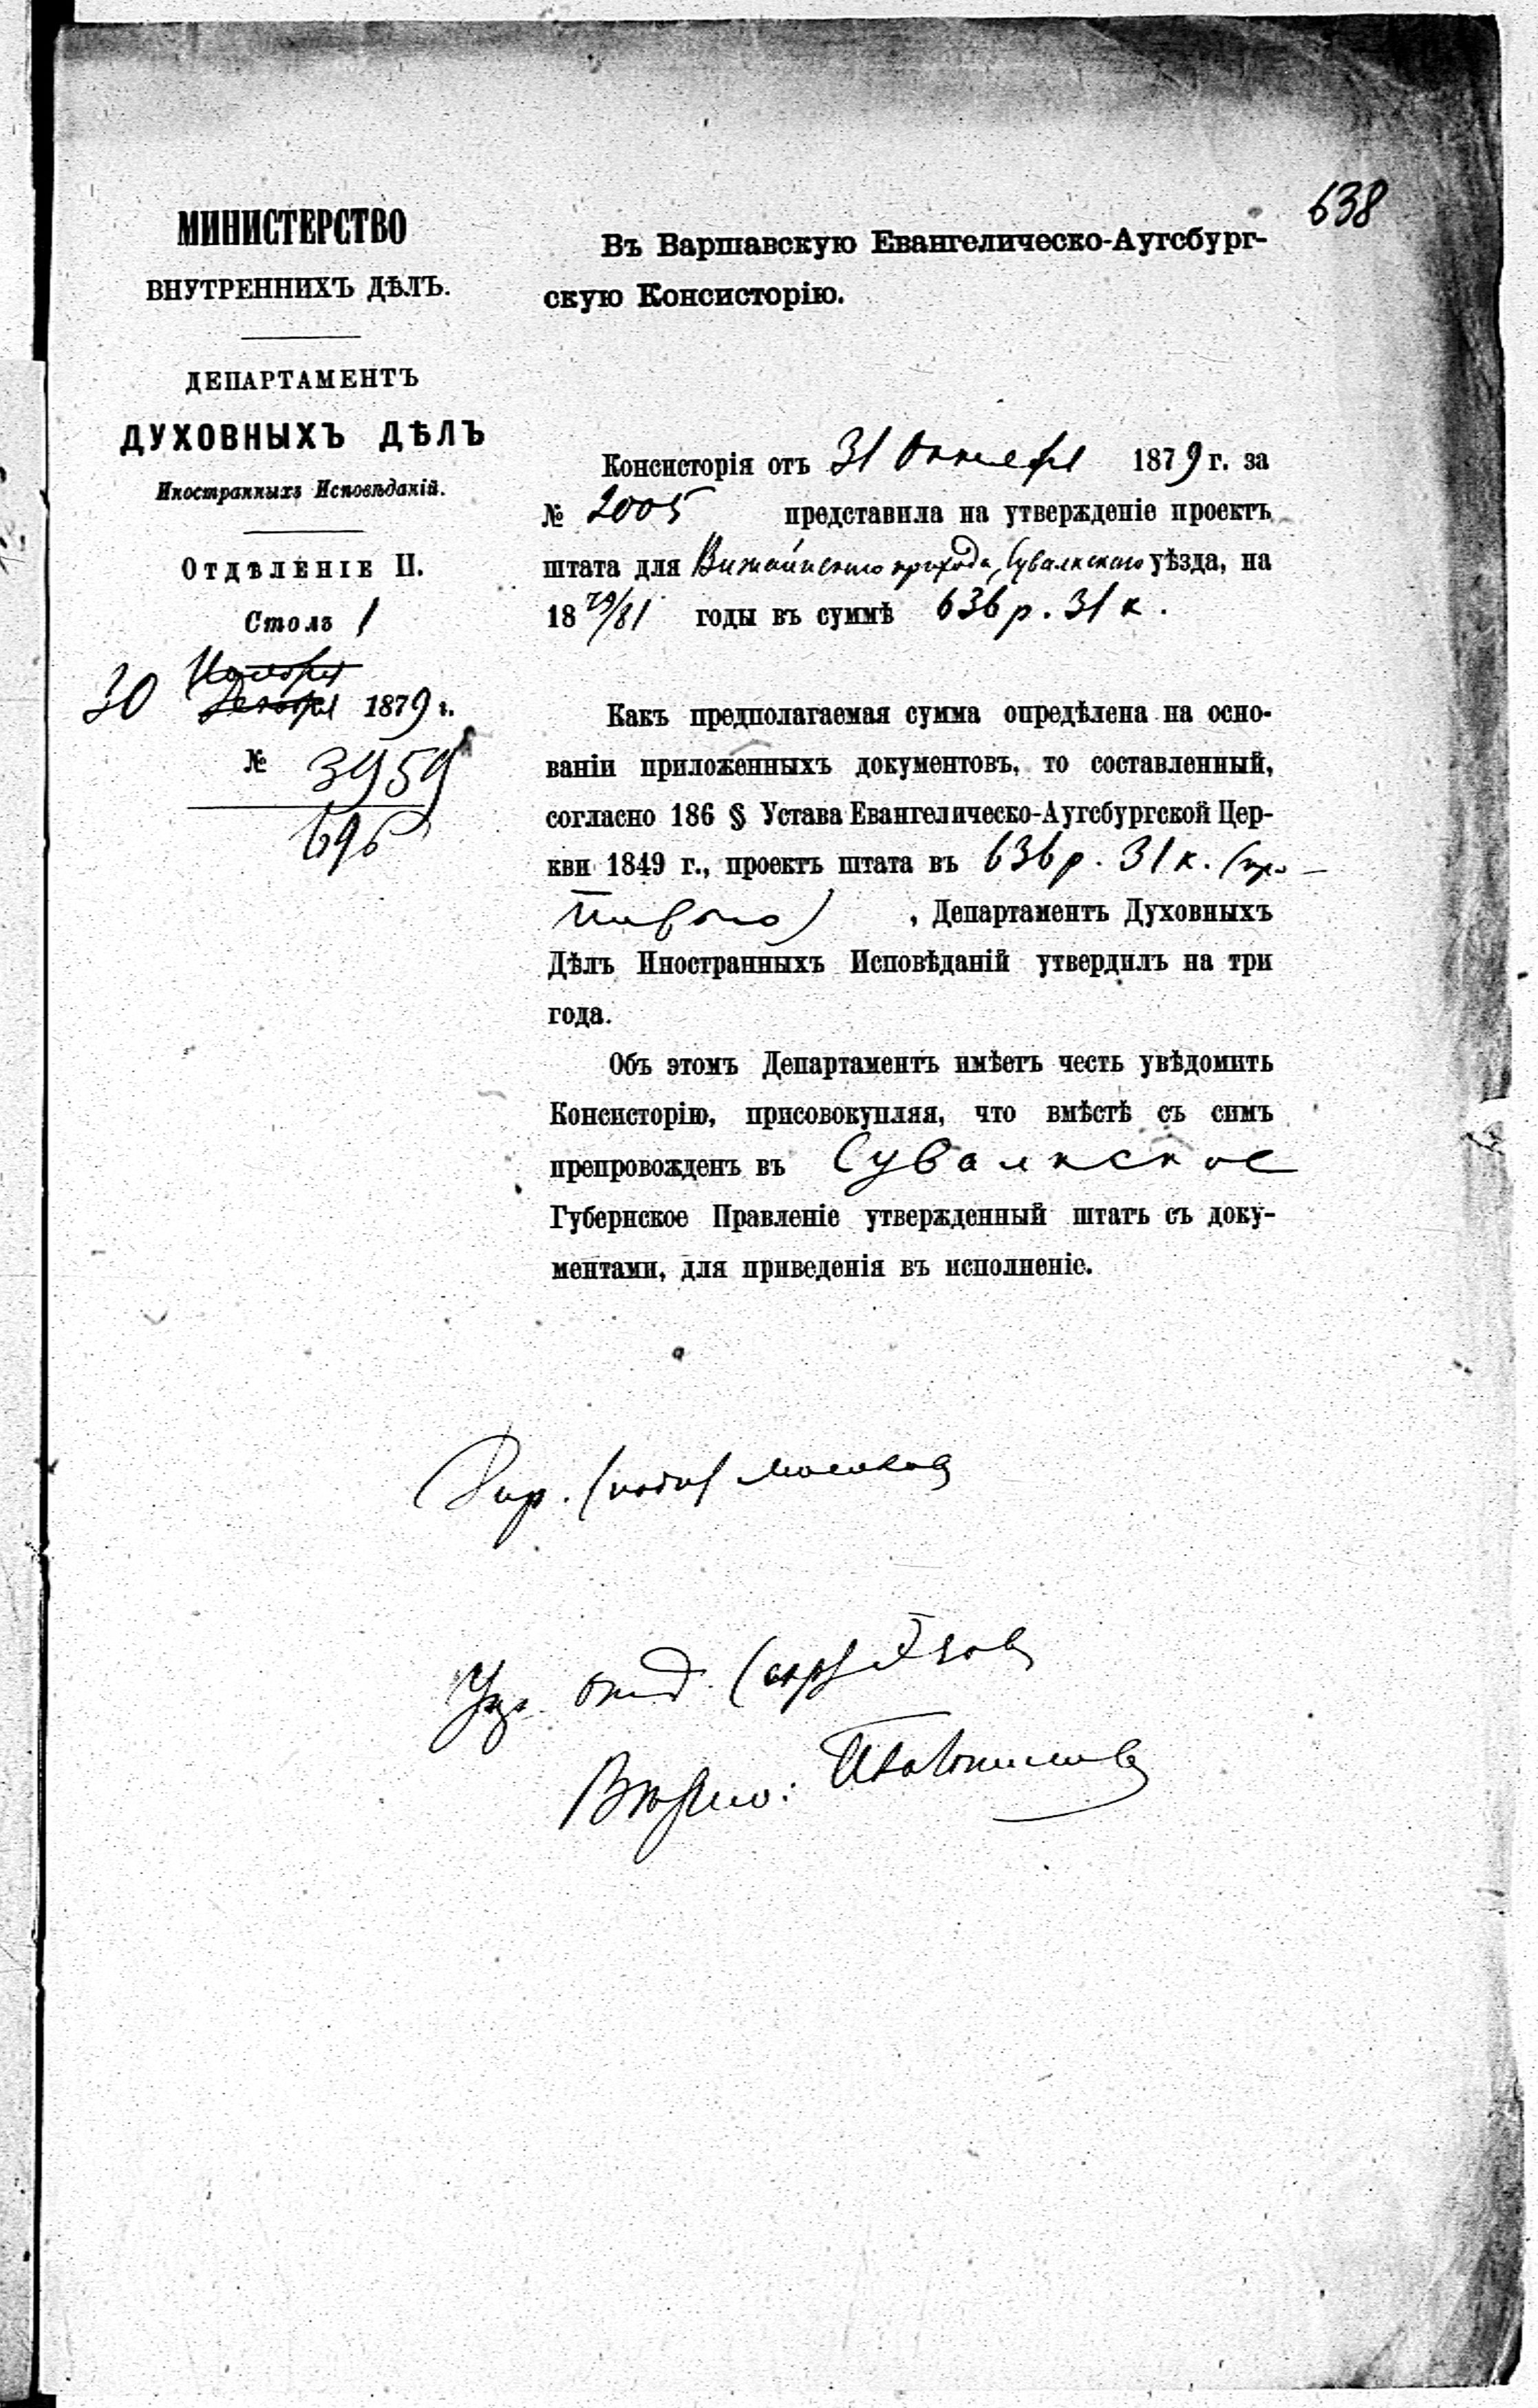 638
МИНИСТЕРСТВО
ВНУТРЕННИХЪ ДѢЛЪ.
ДЕПАРТАМЕНТЪ
ДУХОВНЫХЪ ДѢЛЪ
Иностранныхъ Исповѣданій.
ОТДѢЛЕНІЕ II.
Столъ 1
Ноября
30 Декабря 1879 г.
№ 3959
696
Въ Варшавскую Евангелическо-Аугсбург-
скую Консисторію.
Консисторія отъ 31 Октября 1879 г. за
№ 2005 представила на утвержденіе проектъ
штата для Вижайнскаго прихода, Сувалкскаго уѣзда, на
18 79/81 годы въ суммѣ 636 р. 31 к.
Какъ предполагаемая сумма опредѣлена на осно-
ваніи приложенныхъ документовъ, то составленный,
согласно 186 § Устава Евангелическо-Аугсбургской Цер-
кви 1849 г., проектъ штата въ 636 р. 31 к.
, Департаментъ Духовныхъ
Дѣлъ Иностранныхъ Исповѣданій утвердилъ на три
года.
Объ этомъ Департаментъ имѣетъ честь увѣдомить
Консисторію, присовокупляя, что вмѣстѣ съ симъ
препровожденъ въ Сувалкское
Губернское Правленіе утвержденный штатъ съ доку-
ментами, для приведенія въ исполненіе.
Дир. (подп) Мосолов
Упр. отд.
Вѣрно: